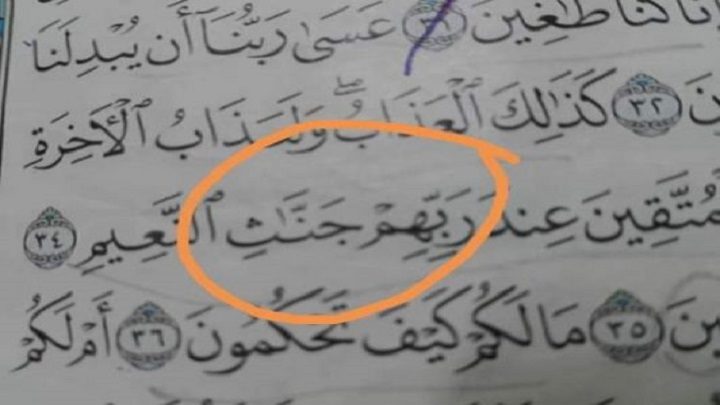 كُنَّا طَٰغِينَ ٣١ عَسَىٰ رَبُّنَآ أَن يُبْدِلَنَا
نَ ٣٢ كَذَٰلِكَ ٱلْعَذَابُ ۖ وَلَعَذَابُ ٱلْأَخِرَةِ
مُتَّقِينَ عِندَ رَبِّهِمْ جَنَّٰثِ ٱلنَّعِيمِ ٣٤
ينَ ٣٥ مَا لَكُمْ كَيْفَ تَحْكُمُونَ ٣٦ أَمْ لَكُمْ